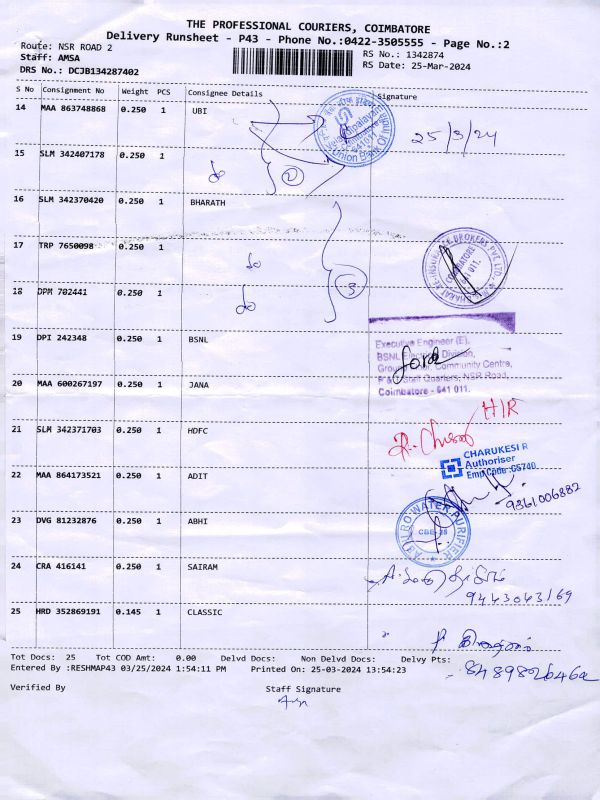 THE PROFESSIONAL COURIERS, COIMBATORE
Delivery Runsheet - P43 - Phone No.:0422-3505555 - Page No.:2
Route: NSR ROAD 2
RS No.: 1342874
Staff: AMSA
RS Date: 25-Mar-2024
DRS No.: DCJB134287402
S No Consignment No Weight PCS Consignee Details Signature
14 MAA 863748868 0.250 1 UBI
25/3/24
Union Bank Of
641011
15 SLM 342407178 0.250 1 do
2
16 SLM 342370420 0.250 1 BHARATH
17 TRP 7650098 0.250 1 do
COIMBATORE
641 011.
18 DPM 702441 0.250 1 do
3
19 DPI 242348 0.250 1 BSNL
Executive Engineer (E),
BSNL Division,
Community Centre,
Quarters, NSR Road,
Coimbatore - 641 011.
20 MAA 600267197 0.250 1 JANA
H/R
21 SLM 342371703 0.250 1 HDFC
CHARUKESI R
Authoriser
Emp Code :G5740
22 MAA 864173521 0.250 1 ADIT
9361006882
23 DVG 81232876 0.250 1 ABHI
WATER PURIFIER
CBE-25
24 CRA 416141 0.250 1 SAIRAM
9443043169
25 HRD 352869191 0.145 1 CLASSIC
Tot Docs: 25 Tot COD Amt: 0.00 Delvd Docs: Non Delvd Docs: Delvy Pts:
Entered By :RESHMAP43 03/25/2024 1:54:11 PM Printed On: 25-03-2024 13:54:23
Verified By Staff Signature